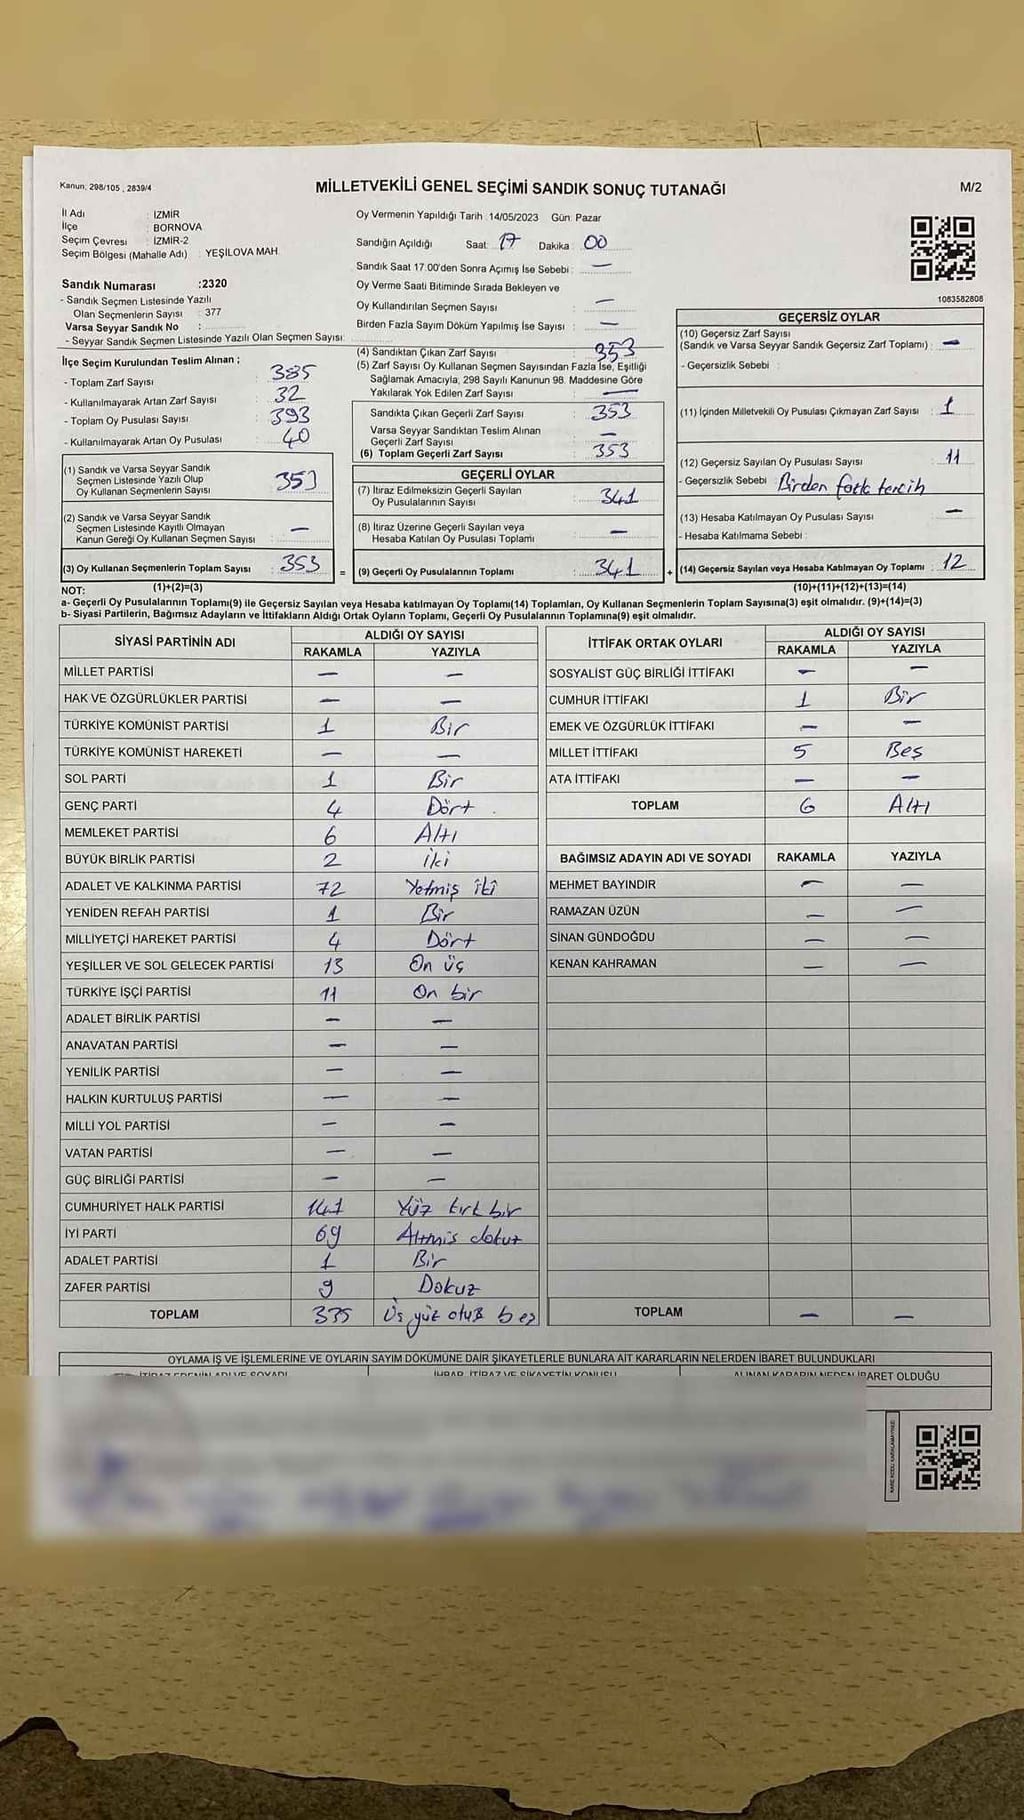 Kanun; 298/105 , 2839/4
MİLLETVEKİLİ GENEL SEÇİMİ SANDIK SONUÇ TUTANAĞI
M/2
İl Adı : İZMİR
İlçe : BORNOVA
Seçim Çevresi : İZMİR-2
Seçim Bölgesi (Mahalle Adı) : YEŞİLOVA MAH.
Oy Vermenin Yapıldığı Tarih :14/05/2023 Gün: Pazar
Sandığın Açıldığı Saat: 17 Dakika: 00
Sandık Saat 17.00'den Sonra Açımış İse Sebebi : —
Oy Verme Saati Bitiminde Sırada Bekleyen ve
Oy Kullandırılan Seçmen Sayısı : —
Birden Fazla Sayım Döküm Yapılmış İse Sayısı : —
1083582808
Sandık Numarası :2320
- Sandık Seçmen Listesinde Yazılı
Olan Seçmenlerin Sayısı : 377
Varsa Seyyar Sandık No :
- Seyyar Sandık Seçmen Listesinde Yazılı Olan Seçmen Sayısı:
İlçe Seçim Kurulundan Teslim Alınan ;
- Toplam Zarf Sayısı : 385
- Kullanılmayarak Artan Zarf Sayısı : 32
- Toplam Oy Pusulası Sayısı : 393
- Kullanılmayarak Artan Oy Pusulası : 40
(1) Sandık ve Varsa Seyyar Sandık
Seçmen Listesinde Yazılı Olup
Oy Kullanan Seçmenlerin Sayısı : 353
(2) Sandık ve Varsa Seyyar Sandık
Seçmen Listesinde Kayıtlı Olmayan
Kanun Gereği Oy Kullanan Seçmen Sayısı : —
(3) Oy Kullanan Seçmenlerin Toplam Sayısı : 353
(1)+(2)=(3)
(4) Sandıktan Çıkan Zarf Sayısı : 353
(5) Zarf Sayısı Oy Kullanan Seçmen Sayısından Fazla İse, Eşitliği
Sağlamak Amacıyla, 298 Sayılı Kanunun 98. Maddesine Göre
Yakılarak Yok Edilen Zarf Sayısı : —
Sandıkta Çıkan Geçerli Zarf Sayısı : 353
Varsa Seyyar Sandıktan Teslim Alınan
Geçerli Zarf Sayısı : —
(6) Toplam Geçerli Zarf Sayısı : 353
GEÇERLİ OYLAR
(7) İtiraz Edilmeksizin Geçerli Sayılan
Oy Pusulalarının Sayısı : 341
(8) İtiraz Üzerine Geçerli Sayılan veya
Hesaba Katılan Oy Pusulası Toplamı : —
= (9) Geçerli Oy Pusulalarının Toplamı : 341
GEÇERSİZ OYLAR
(10) Geçersiz Zarf Sayısı
(Sandık ve Varsa Seyyar Sandık Geçersiz Zarf Toplamı) : —
- Geçersizlik Sebebi :
(11) İçinden Milletvekili Oy Pusulası Çıkmayan Zarf Sayısı : 1
(12) Geçersiz Sayılan Oy Pusulası Sayısı : 11
- Geçersizlik Sebebi : Birden fazla tercih
(13) Hesaba Katılmayan Oy Pusulası Sayısı : —
- Hesaba Katılmama Sebebi :
+ (14) Geçersiz Sayılan veya Hesaba Katılmayan Oy Toplamı : 12
(10)+(11)+(12)+(13)=(14)
NOT:
a- Geçerli Oy Pusulalarının Toplamı(9) ile Geçersiz Sayılan veya Hesaba katılmayan Oy Toplamı(14) Toplamları, Oy Kullanan Seçmenlerin Toplam Sayısına(3) eşit olmalıdır. (9)+(14)=(3)
b- Siyasi Partilerin, Bağımsız Adayların ve İttifakların Aldığı Ortak Oyların Toplamı, Geçerli Oy Pusulalarının Toplamına(9) eşit olmalıdır.
SİYASİ PARTİNİN ADI ALDIĞI OY SAYISI
RAKAMLA YAZIYLA
MİLLET PARTİSİ — —
HAK VE ÖZGÜRLÜKLER PARTİSİ — —
TÜRKİYE KOMÜNİST PARTİSİ 1 Bir
TÜRKİYE KOMÜNİST HAREKETİ — —
SOL PARTİ 1 Bir
GENÇ PARTİ 4 Dört
MEMLEKET PARTİSİ 6 Altı
BÜYÜK BİRLİK PARTİSİ 2 iki
ADALET VE KALKINMA PARTİSİ 72 Yetmiş iki
YENİDEN REFAH PARTİSİ 1 Bir
MİLLİYETÇİ HAREKET PARTİSİ 4 Dört
YEŞİLLER VE SOL GELECEK PARTİSİ 13 On üç
TÜRKİYE İŞÇİ PARTİSİ 11 On bir
ADALET BİRLİK PARTİSİ — —
ANAVATAN PARTİSİ — —
YENİLİK PARTİSİ — —
HALKIN KURTULUŞ PARTİSİ — —
MİLLİ YOL PARTİSİ — —
VATAN PARTİSİ — —
GÜÇ BİRLİĞİ PARTİSİ — —
CUMHURİYET HALK PARTİSİ 141 Yüz kırk bir
İYİ PARTİ 69 Altmış dokuz
ADALET PARTİSİ 1 Bir
ZAFER PARTİSİ 9 Dokuz
TOPLAM 335 Üç yüz otuz beş
İTTİFAK ORTAK OYLARI ALDIĞI OY SAYISI
RAKAMLA YAZIYLA
SOSYALİST GÜÇ BİRLİĞİ İTTİFAKI — —
CUMHUR İTTİFAKI 1 Bir
EMEK VE ÖZGÜRLÜK İTTİFAKI — —
MİLLET İTTİFAKI 5 Beş
ATA İTTİFAKI — —
TOPLAM 6 Altı
BAĞIMSIZ ADAYIN ADI VE SOYADI RAKAMLA YAZIYLA
MEHMET BAYINDIR — —
RAMAZAN ÜZÜN — —
SİNAN GÜNDOĞDU — —
KENAN KAHRAMAN — —
TOPLAM — —
OYLAMA İŞ VE İŞLEMLERİNE VE OYLARIN SAYIM DÖKÜMÜNE DAİR ŞİKAYETLERLE BUNLARA AİT KARARLARIN NELERDEN İBARET BULUNDUKLARI
İTİRAZ EDENİN ADI VE SOYADI İHBAR, İTİRAZ VE ŞİKAYETİN KONUSU ALINAN KARARIN NEDEN İBARET OLDUĞU